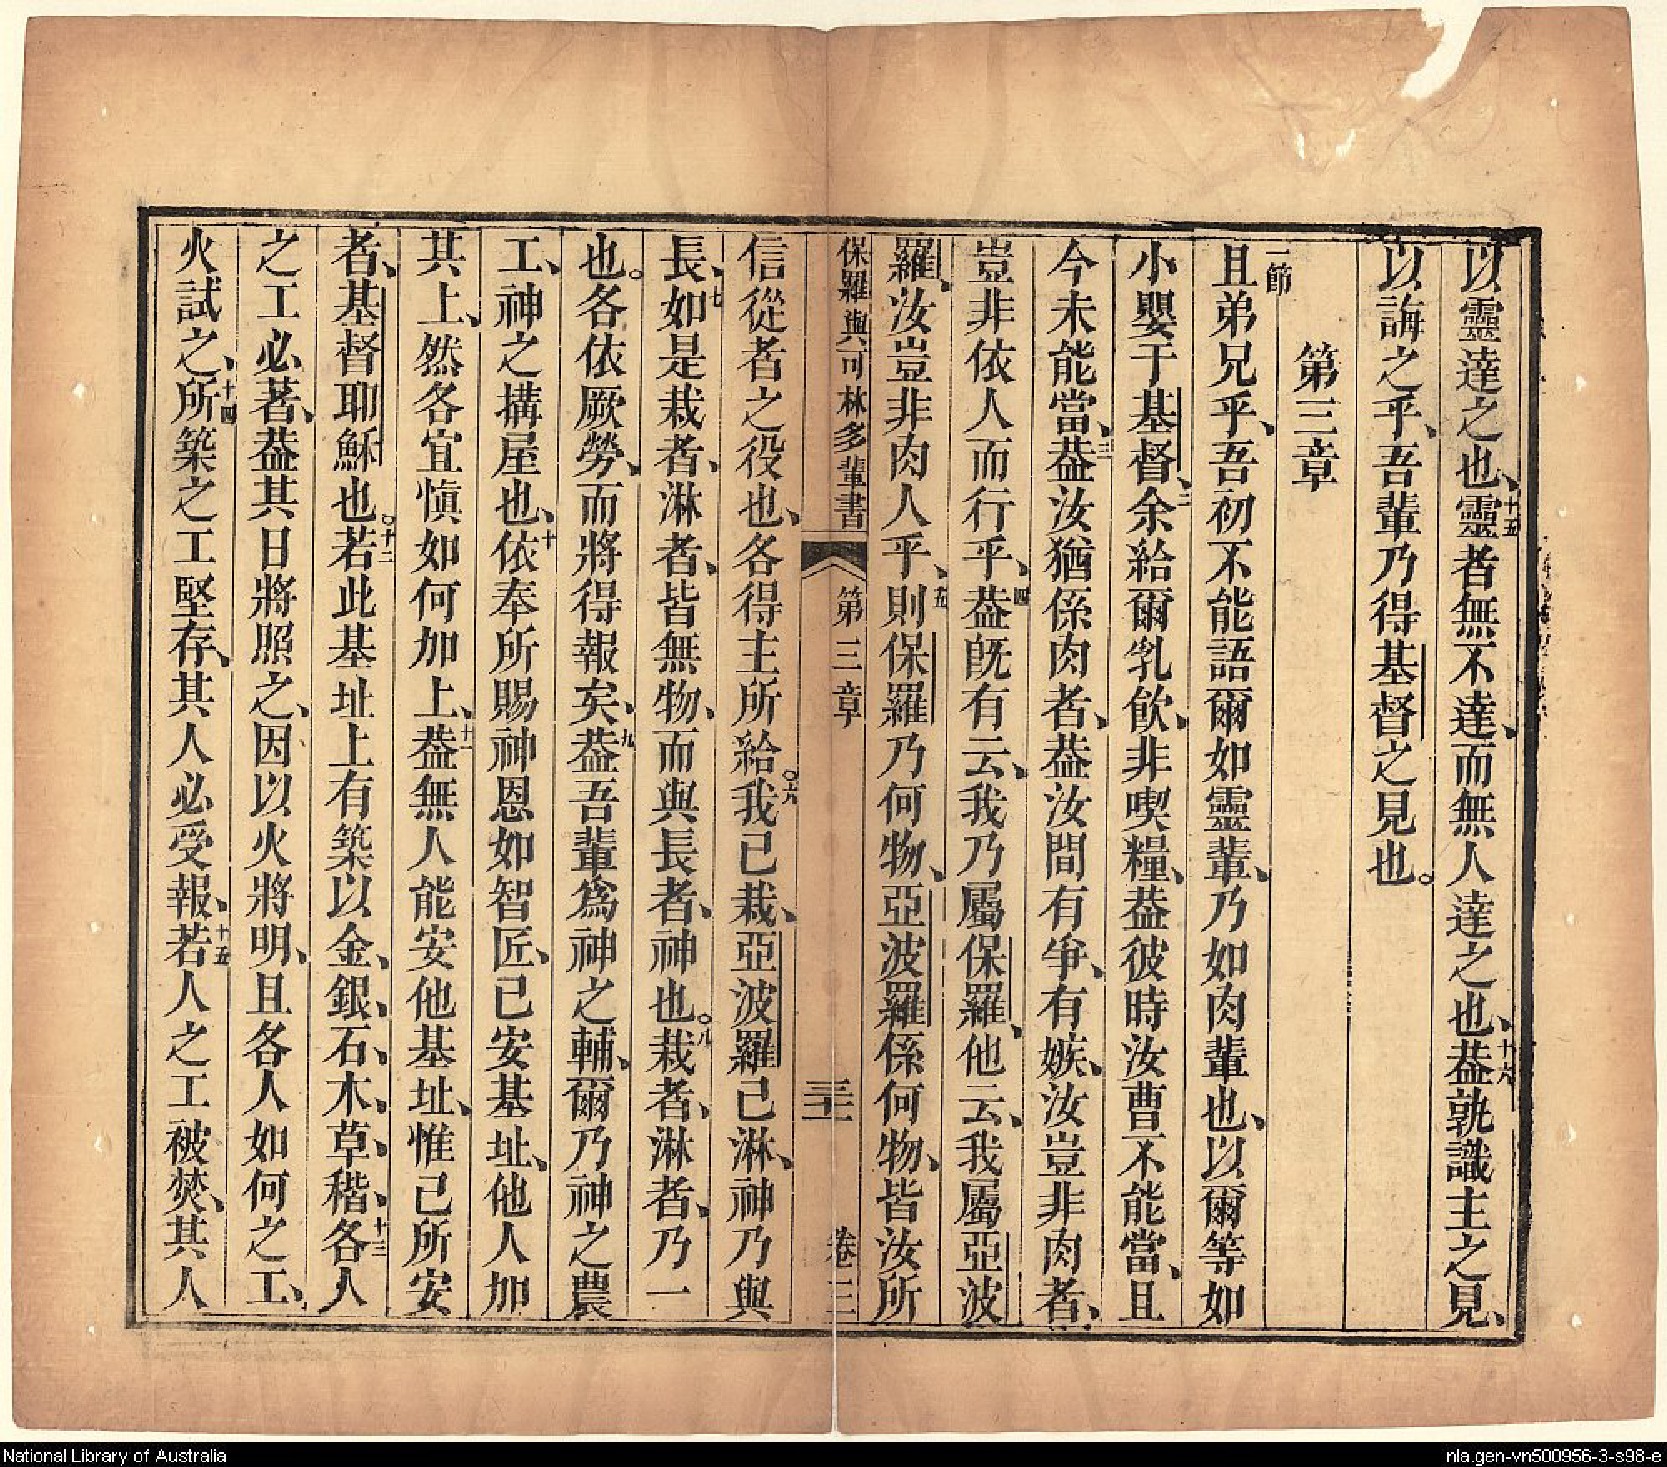 以靈達之也、十五靈者無不達、而無人達之也、十六葢孰識主之見、
以誨之乎、吾輩乃得基督之見也。
第三章
一節且弟兄乎、吾初不能語爾如靈輩、乃如肉輩也、以爾等如
小嬰于基督、二余給爾乳飲、非喫糧、葢彼時汝曹不能當、且
今未能當、三葢汝猶係肉者、葢汝間有爭、有嫉、汝豈非肉者、
豈非依人而行乎、四葢旣有云、我乃屬保羅、他云、我屬亞波
羅、汝豈非肉人乎、五則保羅乃何物、亞波羅係何物、皆汝所
保羅與可林多輩書 第三章 三十一 卷三
信從者之役也、各得主所給。六我已栽、亞波羅已淋、神乃與
長、七如是栽者、淋者、皆無物、而與長者、神也。八栽者、淋者、乃一
也。各依厥勞、而將得報矣、九葢吾輩爲神之輔、爾乃神之農
工、神之搆屋也、十依奉所賜神恩如智匠、已安基址、他人加
其上、然各宜愼如何加上、十一葢無人能安他基址、惟已所安
者、基督耶穌也。十二若此基址上有築以金、銀、石、木、草、稭、十三各人
之工必著、葢其日將照之、因以火將明、且各人如何之工、
火試之、十四所築之工堅存、其人必受報、十五若人之工被焚、其人
National Library of Australia
nla.gen-vn500956-3-s98-e